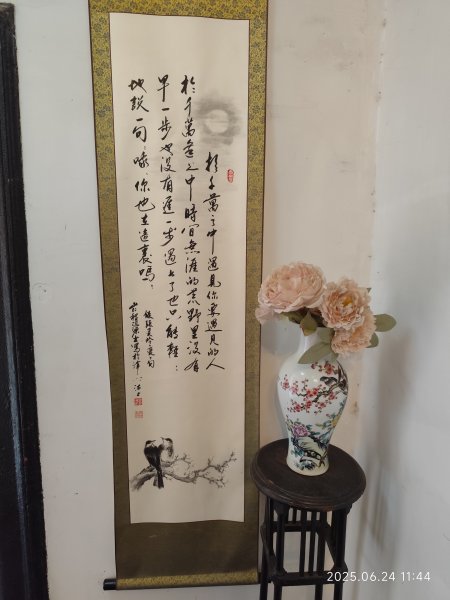 於千萬之中遇見你要遇見的人
於千萬年之中時間無涯的荒野里没有
早一步也没有遲一步遇上了也只能輕：
地説一句：哦，你也在這裏嗎？
錄張愛玲愛句
2025.06.24 11:44